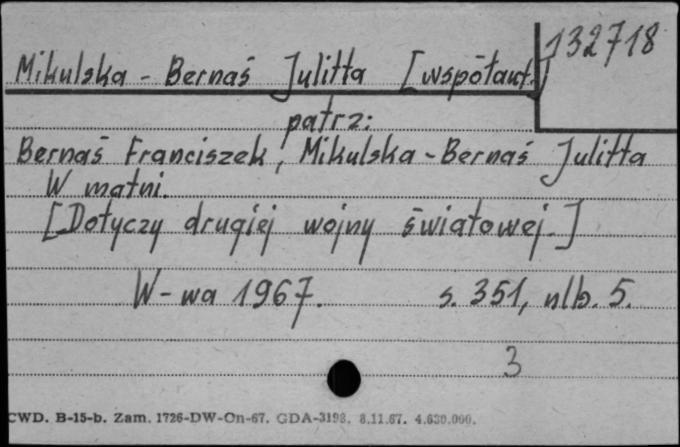 132718
Mikulska - Bernaś Julitta [współaut.]
patrz:
Bernaś Franciszek, Mikulska - Bernaś Julitta
W matni.
[Dotyczy drugiej wojny światowej.]
W-wa 1967. s. 351, nlb. 5.
3
CWD. B-15-b. Zam. 1726-DW-On-67. GDA-3198. 8.11.67. 4.630.000.